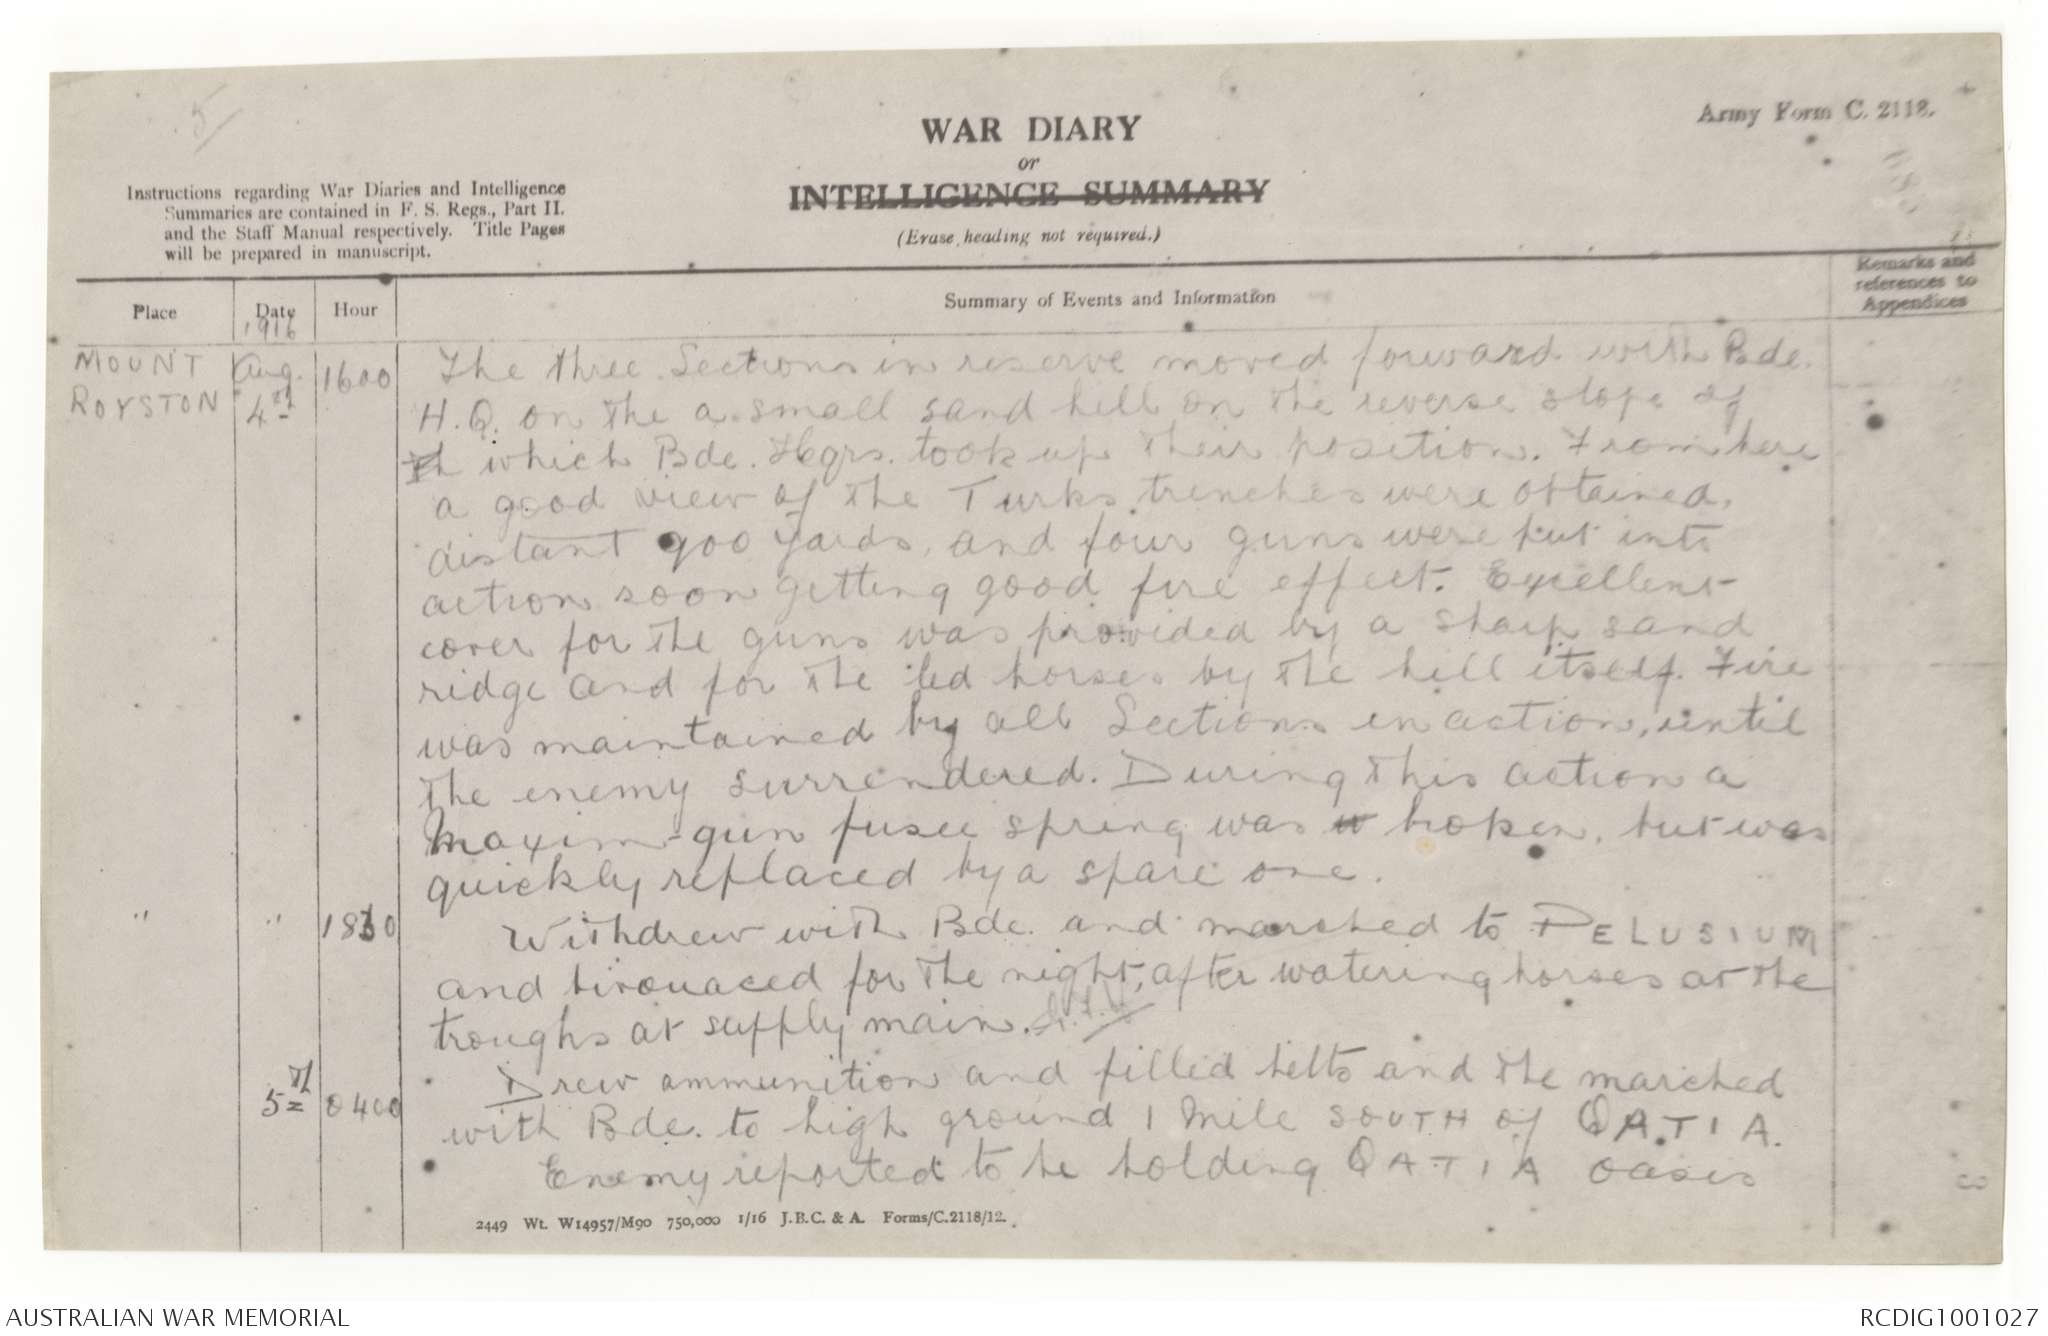 5/
Army Form C. 2118.
WAR DIARY
or
INTELLIGENCE SUMMARY
(Erase heading not required.)
Instructions regarding War Diaries and Intelligence
Summaries are contained in F. S. Regs., Part II.
and the Staff Manual respectively. Title Pages
will be prepared in manuscript.
Place
Date
1916
Hour
Summary of Events and Information
Remarks and
references to
Appendices
MOUNT
ROYSTON
Aug.
4th
1600
The three Sections in reserve moved forward with Bde.
H.Q. on the a small sand hill on the reverse slope of
th which Bde. Hqrs. took up their position. From here
a good view of the Turks trenches were obtained,
distant 900 yards, and four guns were put into
action soon getting good fire effect. Excellent
cover for the guns was provided by a sharp sand
ridge and for the led horses by the hill itself. Fire
was maintained by all Sections in action, until
the enemy surrendered. During this action a
Maxim-gun fusee spring was broken, but was
quickly replaced by a spare one.
" " 1830
Withdrew with Bde. and marched to PELUSIUM
and bivouaced for the night, after watering horses at the
troughs at supply main.
5th 0400
Drew ammunition and filled belts and the marched
with Bde. to high ground 1 mile SOUTH of QATIA.
Enemy reported to be holding QATIA oasis
2449 Wt. W14957/M90 750,000 1/16 J.B.C. & A. Forms/C.2118/12.
AUSTRALIAN WAR MEMORIAL
RCDIG1001027